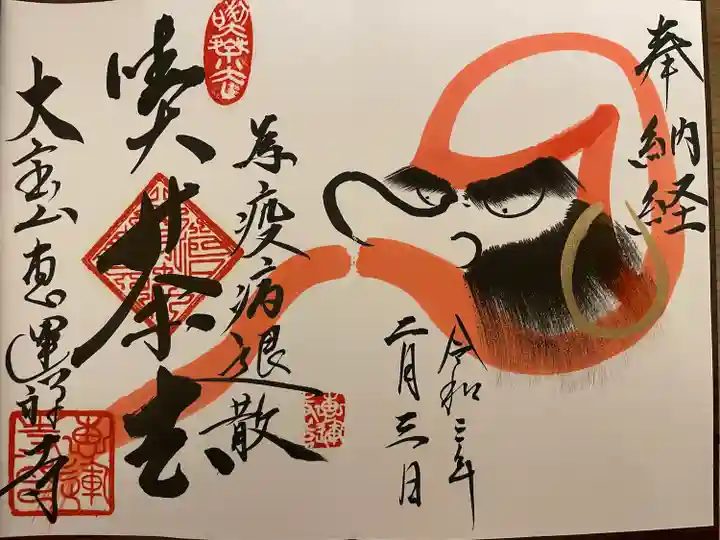 奉納経
令和三年
二月三日
為疫病退散
喫茶去
大宝山恵運禅寺
喫茶去